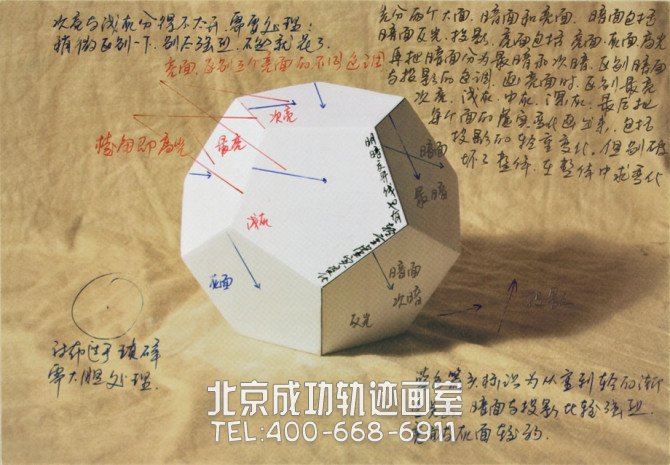 次亮与浅灰分得不太开,需要处理:
稍做区别一下,别太强烈,不然就花了.
先分两个大面,暗面和亮面,暗面包括
暗面反光,投影,亮面包括亮面,灰面,高光
再把暗面分为最暗和次暗,区别暗面
与投影的色调.画亮面时,区别最亮
次亮,浅灰,中灰,深灰,最后把
每个面的虚实变化画出来,包括
投影的轻重变化,但别破
坏了整体,在整体中求变化
亮面,区别三个亮面的不同色调
次亮
最亮
棱角即高光
浅灰
灰面
明暗交界线
暗面
最暗
暗面
次暗
反光
投影
衬布过于琐碎
需大胆处理.
蓝色箭头标识为从重到轻的渐
暗面与投影比较强烈
亮面与灰面较弱.
北京成功轨迹画室
TEL:400-668-6911